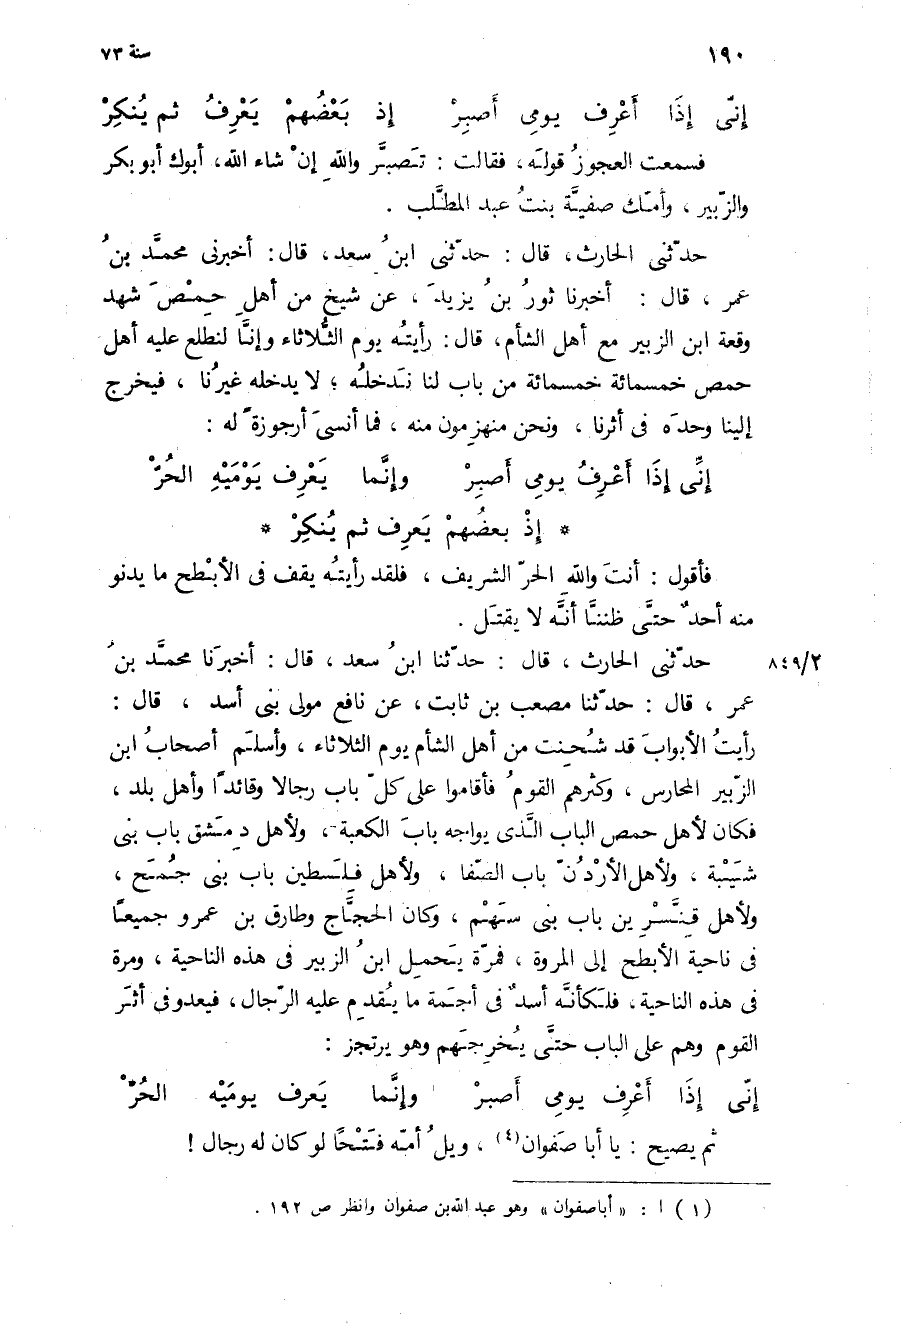 ١٩٠ سنة ٧٣
إنّى إذَا أَعْرِف يومِى أَصبِرْ إذ بَعْضُهمْ يَعْرِفُ ثم يُنكِرْ
فسمعت العجوزُ قولَه، فقالت : تَصبَّر واللهِ إن ْ شاء الله، أبوك أبو بكر
والزّبير ، وأمّك صفيَّة بنتُ عبد المطَّلب .
حدّثنى الحارث، قال : حدّثنى ابنُ سعد، قال: أخبرنى محمَّد بنُ
عمر ، قال : أخبرنا ثورُ بنُ يزيدَ ، عن شيخ من أهلِ حِمْصَ شهد
وقعة ابن الزبير مع أهل الشأم، قال: رأيتُه يوم الثُّلاثاء وإنَّا لنطلع عليه أهل
حمص خمسمائة خمسمائة من باب لنا نَدخلُه ؛ لا يدخله غيرُنا ، فيخرج
إلينا وحدَه فى أثرنا ، ونحن منهزِمون منه ، فما أنسىَ أرجوزةً له :
إنِّى إذَا أَعْرِفُ يومِى أَصبِرْ وإنَّما يَعْرِف يَوْمَيْهِ الحُرّْ
* إذْ بعضُهمْ يَعرِف ثم يُنكِرْ *
فأقول : أنتَ واللهِ الحرّ الشريف ، فلقد رأيتُه يقف فى الأبْطح ما يدنو
منه أحدٌ حتَّى ظننَّا أنَّه لا يقتَل .
حدّثنى الحارث ، قال : حدّثنا ابنُ سعد ، قال : أخبرَنا محمَّد بنُ ٨٤٩/٢
عمر ، قال : حدّثنا مصعب بن ثابت، عن نافع مولى بنى أسد ، قال :
رأيتُ الأبوابَ قد شُحِنت من أهل الشأم يوم الثلاثاء ، وأسلَم أصحابُ ابن
الزّبير المحارس ، وكثرهم القومُ فأقاموا على كلّ باب رجالا وقائدًا وأهل بلد ،
فكان لأهل حمص الباب الَّذى يواجه بابَ الكعبة ، ولأهل دِمَشق باب بنى
شَيْبة ، ولأهل الأرْدُنّ باب الصّفا ، ولأهل فِلَسطين باب بنى جُمَح ،
ولأهل قِنَّسْرِين باب بنى سَهْم ، وكان الحجَّاج وطارق بن عمرو جميعًا
فى ناحية الأبطح إلى المروة ، فمرّة يَحمِل ابنُ الزبير فى هذه الناحية ، ومرة
فى هذه الناحية، فلَكأنَّه أسدٌ فى أجَمة ما يُقدِم عليه الرّجال، فيعدو فى أثَر
القوم وهم على الباب حتَّى يُخرِجَهم وهو يرتجز :
إنّى إذَا أَعْرِف يومِى أَصبِرْ وإنَّما يَعرف يومَيْه الحُرّْ
ثم يصيح : يا أبا صَفوان(٤) ، ويلُ أمّه فَتْحًا لو كان له رجال !
(١) ا : « أباصفوان » وهو عبد الله بن صفوان وانظر ص ١٩٢ .